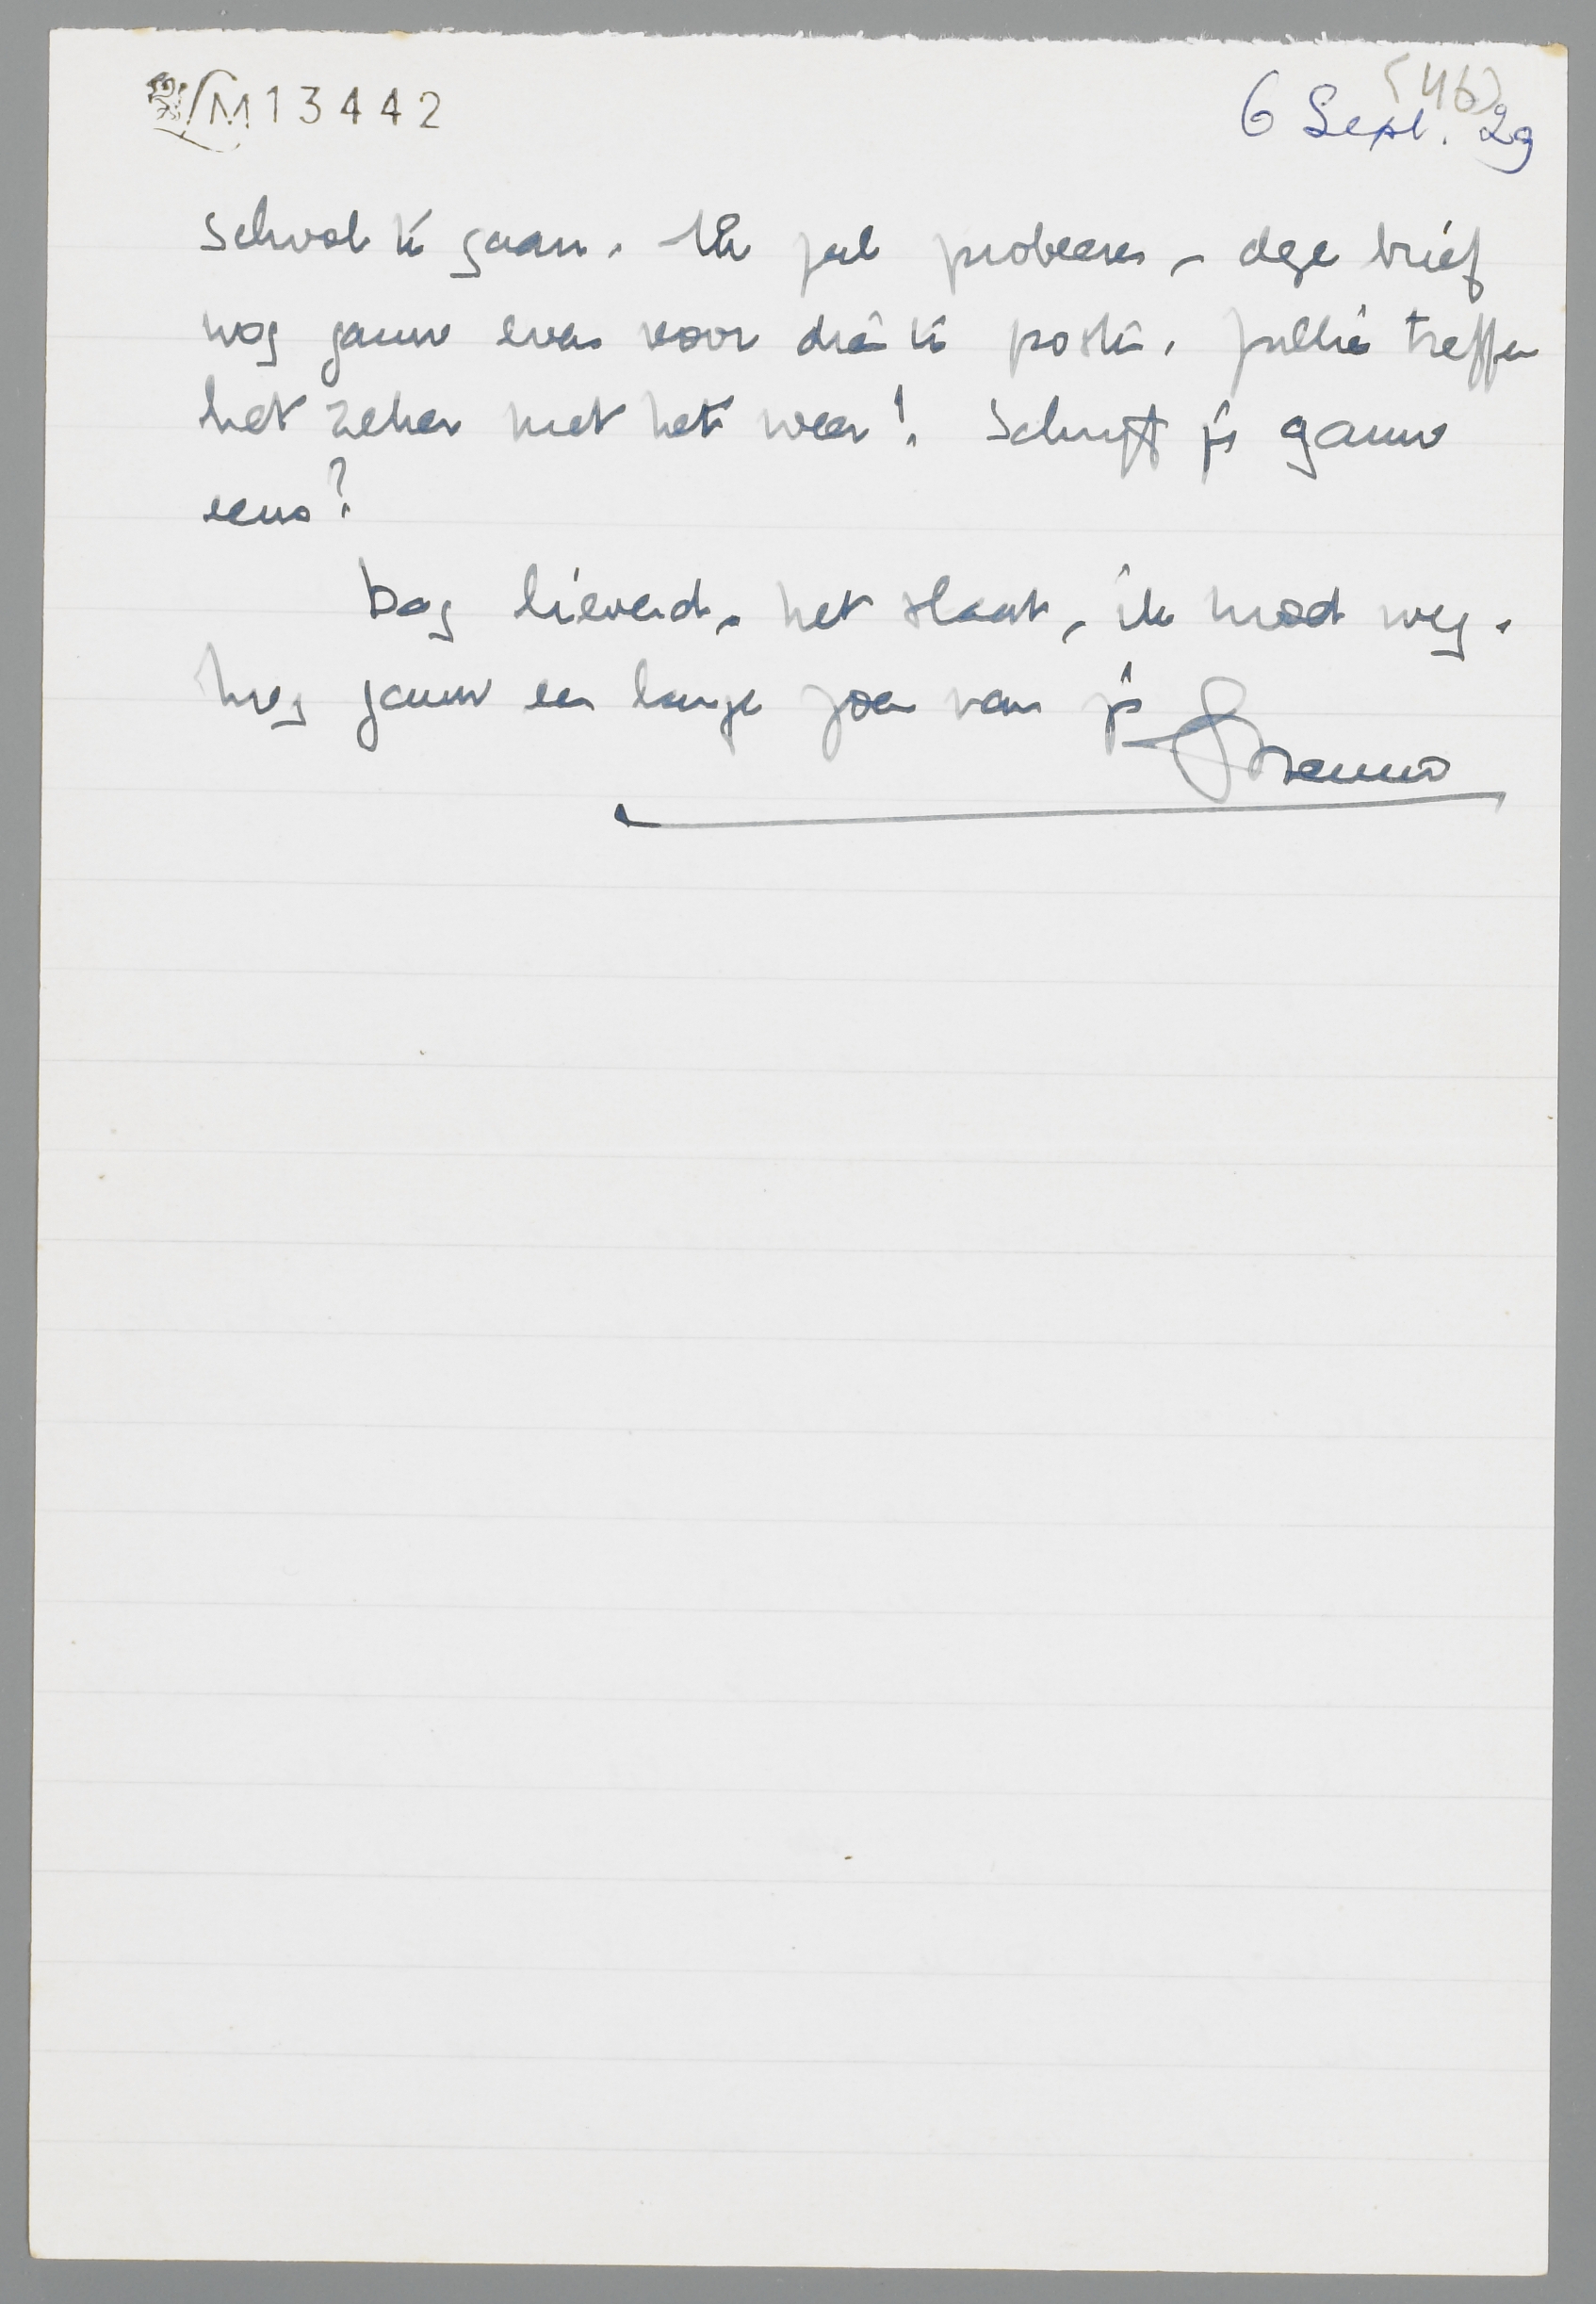 M13442
(46)
6 Sept. 29
school te gaan. Ik zal probeeren, deze brief
nog gauw even voor drie te posten. Jullie treffen
het zeker met het weer! Schrijft je gauw
eens?
Dag lieverd, het slaat, ik moet weg.
Nog gauw een lange zoen van je
Menno